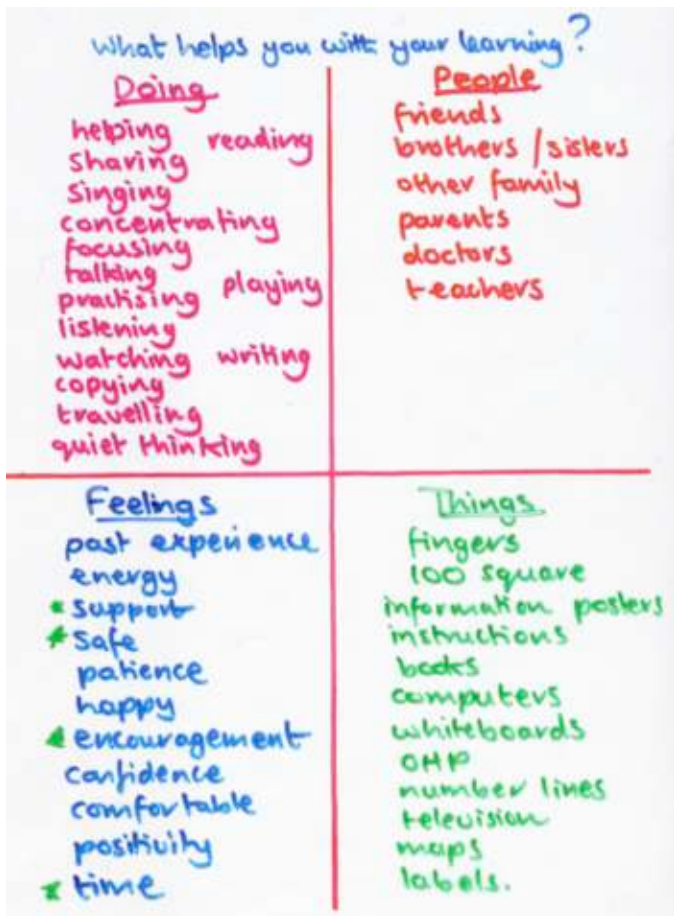 What helps you with your learning?
Doing
helping reading
sharing
singing
concentrating
focusing
talking
practising playing
listening
watching writing
copying
travelling
quiet thinking
People
friends
brothers / sisters
other family
parents
doctors
teachers
Feelings
past experience
energy
* support
* safe
patience
happy
* encouragement
confidence
comfortable
positivity
* time
Things
fingers
100 square
information posters
instructions
books
computers
whiteboards
OHP
number lines
television
maps
labels.